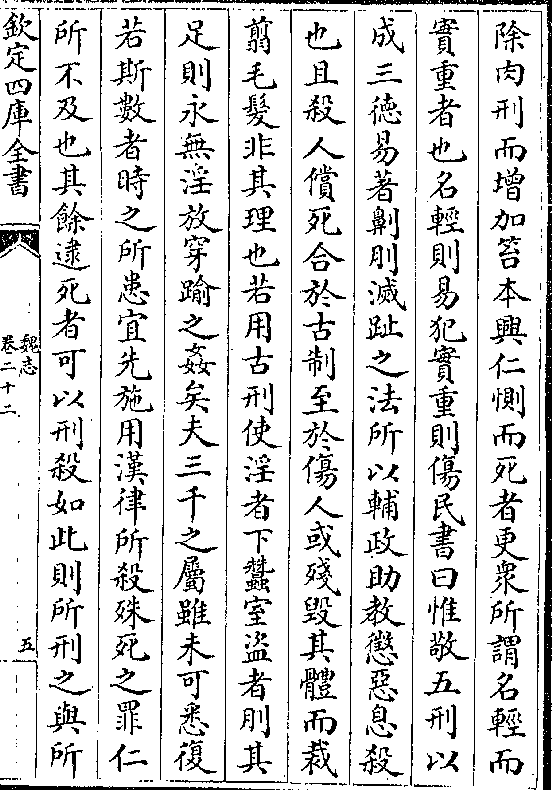 除肉刑而增加笞本興仁惻而死者更衆所謂名輕而
實重者也名輕則易犯實重則傷民書曰惟敬五刑以
成三德易著劓刖滅趾之法所以輔政助教懲惡息殺
也且殺人償死合於古制至於傷人或殘毀其體而裁
翦毛髮非其理也若用古刑使淫者下蠶室盜者刖其
足則永無淫放穿踰之姦矣夫三千之屬雖未可悉復
若斯數者時之所患宜先施用漢律所殺殊死之罪仁
所不及也其餘逮死者可以刑殺如此則所刑之與所
欽定四庫全書
魏志
卷二十二
五